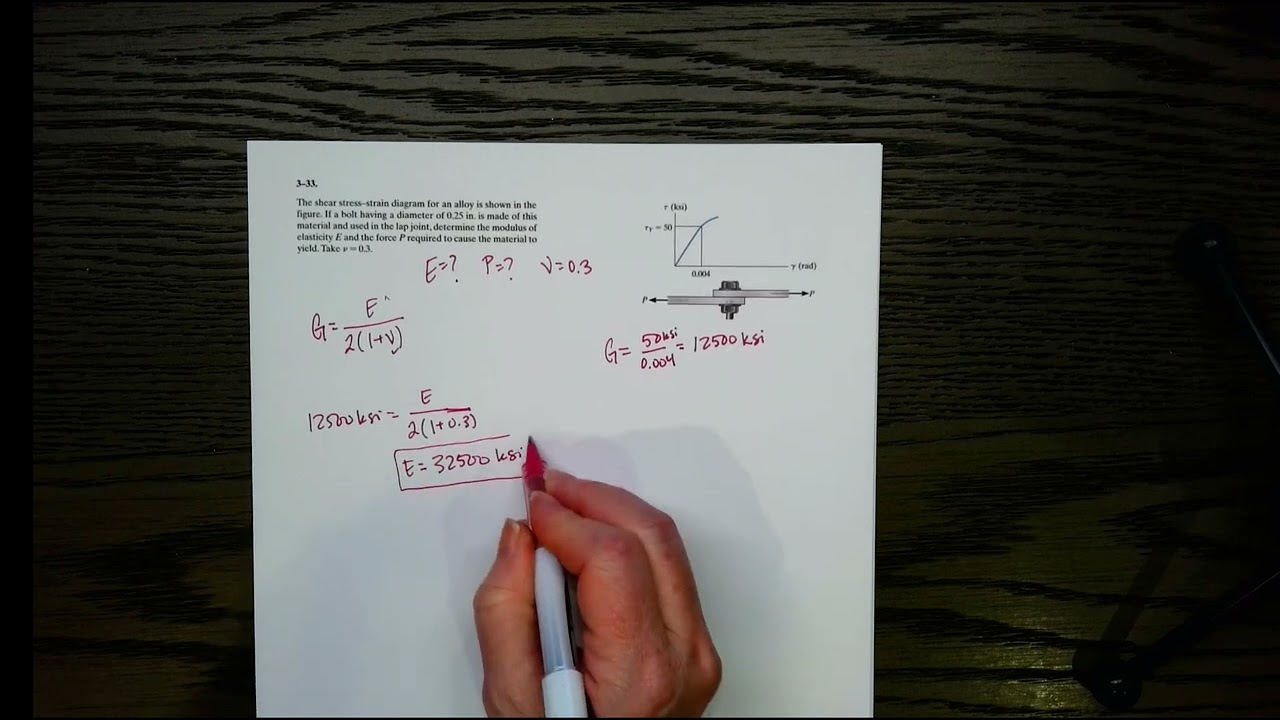 3–33.
The shear stress–strain diagram for an alloy is shown in the
figure. If a bolt having a diameter of 0.25 in. is made of this
material and used in the lap joint, determine the modulus of
elasticity E and the force P required to cause the material to
yield. Take ν = 0.3.
τ (ksi)
τY = 50
0.004
γ (rad)
P
P
E=? P=? ν=0.3
G = E / 2(1+ν)
G = 50 ksi / 0.004 = 12500 ksi
12500 ksi = E / 2(1+0.3)
E = 32500 ksi